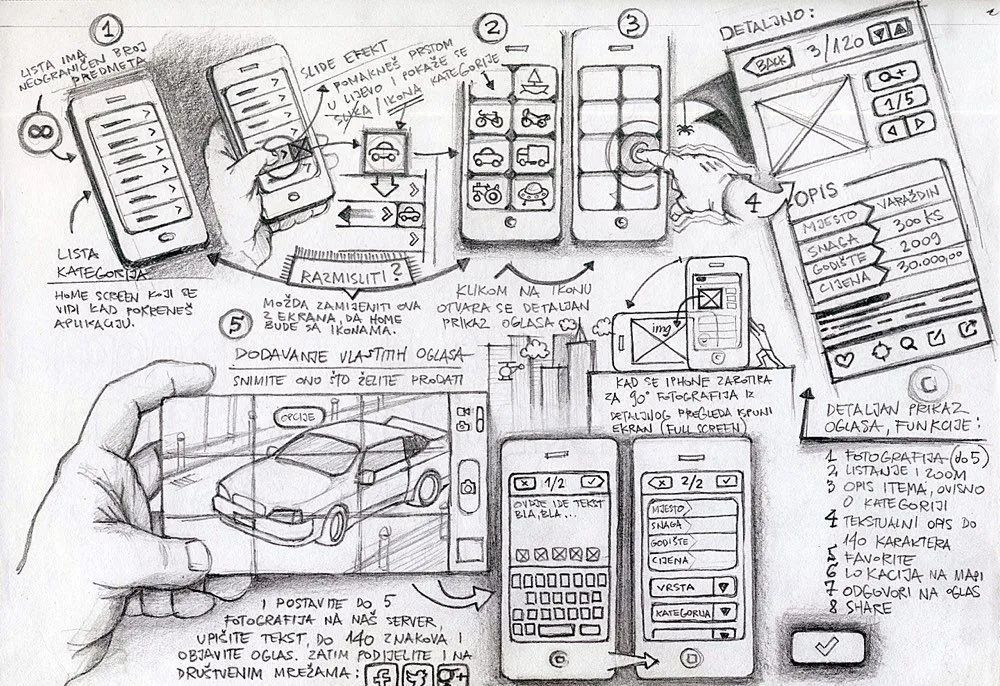 1
LISTA IMA
NEOGRANIČEN BROJ
PREDMETA
∞
LISTA
KATEGORIJA
HOME SCREEN KOJI SE
VIDI KAD POKRENEŠ
APLIKACIJU.
SLIDE EFEKT
POMAKNEŠ PRSTOM
U LIJEVO I POKAŽE SE
SLIKA / IKONA KATEGORIJE
RAZMISLITI?
MOŽDA ZAMIJENITI OVA
2 EKRANA, DA HOME
BUDE SA IKONAMA.
2
3
KLIKOM NA IKONU
OTVARA SE DETALJAN
PRIKAZ OGLASA
4
DETALJNO:
BACK
3/120
+
1/5
OPIS
MJESTO VARAŽDIN
SNAGA 300 KS
GODIŠTE 2009
CIJENA 30.000,00
DETALJAN PRIKAZ
OGLASA, FUNKCIJE:
1 FOTOGRAFIJA (do 5)
2 LISTANJE I ZOOM
3 OPIS ITEMA, OVISNO
O KATEGORIJI
4 TEKSTUALNI OPIS DO
140 KARAKTERA
5 FAVORITE
6 LOKACIJA NA MAPI
7 ODGOVORI NA OGLAS
8 SHARE
img
KAD SE IPHONE ZAROTIRA
ZA 90° FOTOGRAFIJA IZ
DETALJNOG PREGLEDA ISPUNI
EKRAN (FULL SCREEN)
5
DODAVANJE VLASTITIH OGLASA
SNIMITE ONO ŠTO ŽELITE PRODATI
OPCIJE
I POSTAVITE DO 5
FOTOGRAFIJA NA NAŠ SERVER,
UPIŠITE TEKST, DO 140 ZNAKOVA I
OBJAVITE OGLAS. ZATIM PODIJELITE I NA
DRUŠTVENIM MREŽAMA: f g+
1/2
OVDJE IDE TEKST
BLA, BLA,...
2/2
MJESTO
SNAGA
GODIŠTE
CIJENA
VRSTA
KATEGORIJA